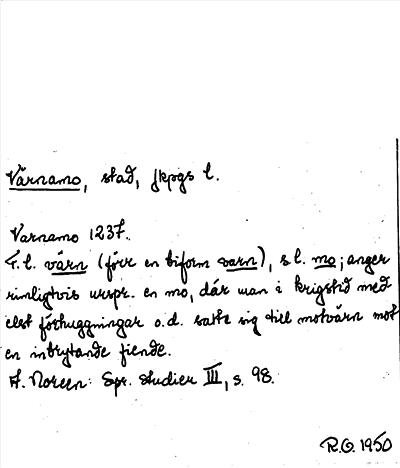 Värnamo, stad, Jkpgs l.
Varnamo 1237.
F. l. värn (förr en biform varn), s l. mo; anger
rimligtvis urspr. en mo, där man i krigstid med
elst förhuggningar o.d. satte sig till motvärn mot
en inbrytande fiende.
A. Noreen: Spr. studier III, s. 98.
R.O. 1950